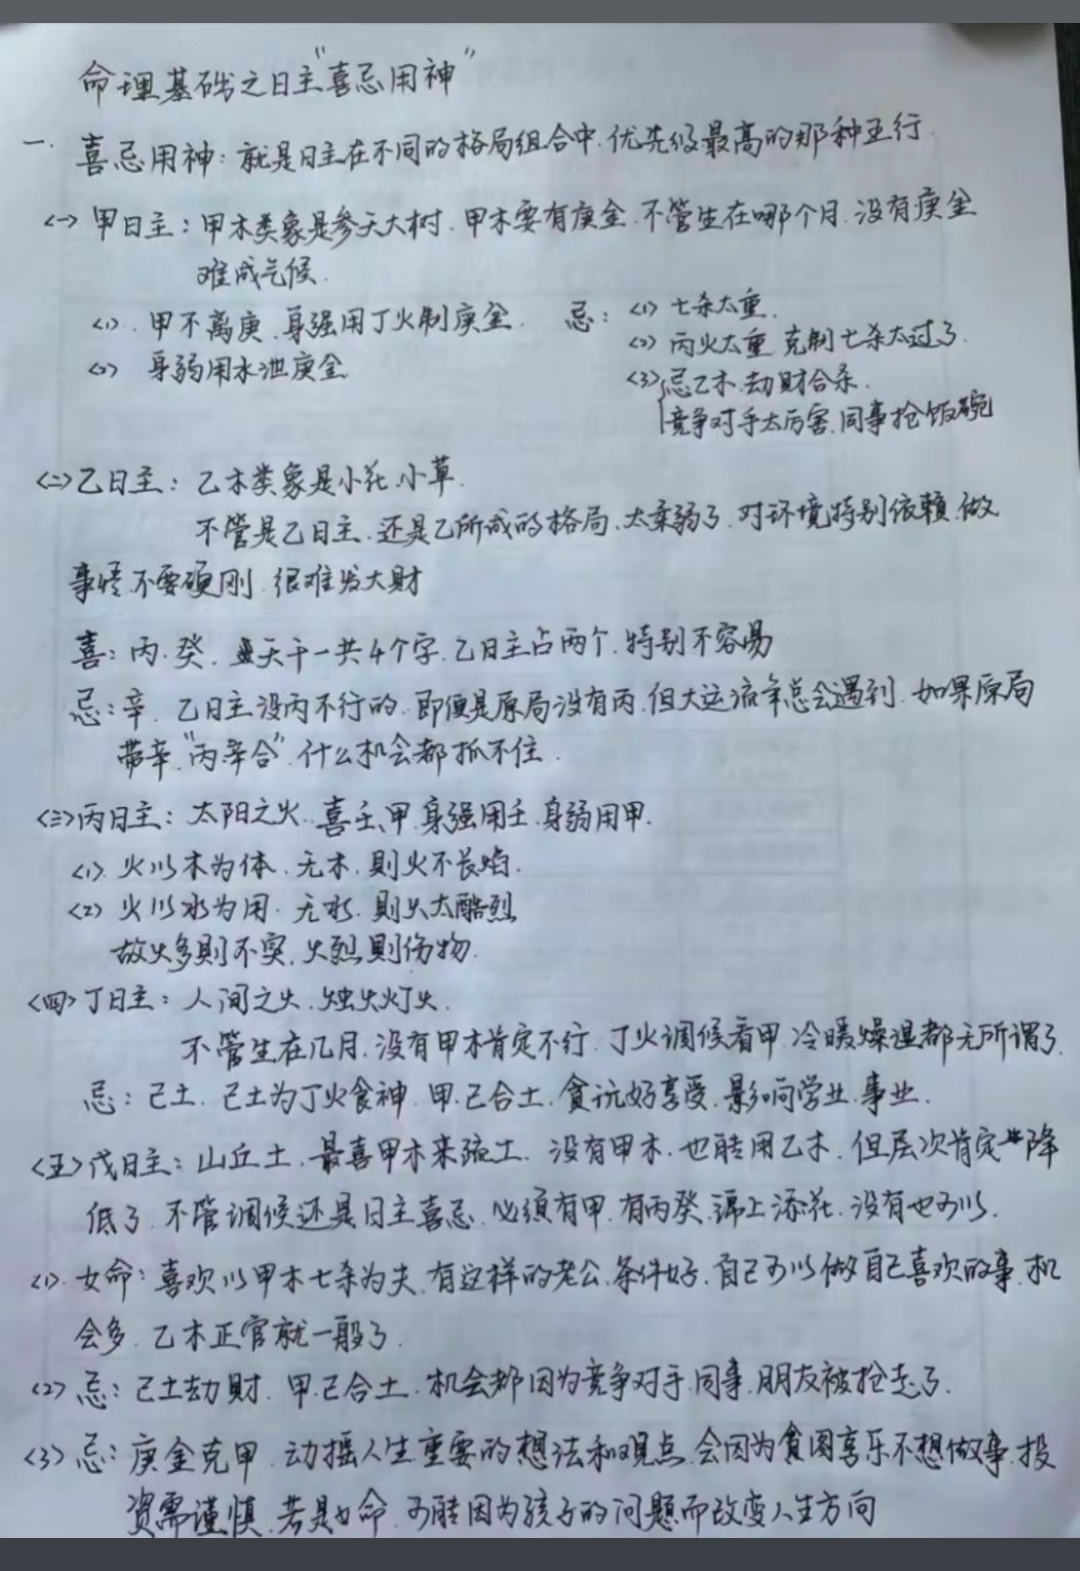 命理基础之日主"喜忌用神"
一. 喜忌用神：就是日主在不同的格局组合中.优先级最高的那种五行
<一> 甲日主：甲木类象是参天大树.甲木要有庚金.不管生在哪个月.没有庚金
难成气候.
<1>. 甲不离庚.身强用丁火制庚金. 忌：<1> 七杀太重.
<2> 身弱用水泄庚金 <2> 丙火太重 克制七杀太过了.
<3> 忌乙木.劫财合杀.
竞争对手太厉害.同事抢饭碗
<二>乙日主：乙木类象是小花.小草.
不管是乙日主.还是乙所成的格局.太柔弱了.对环境特别依赖.做
事情.不要硬刚.很难发大财
喜：丙.癸. 天干一共4个字.乙日主占两个.特别不容易
忌：辛. 乙日主没丙不行的.即便是原局没有丙.但大运流年总会遇到.如果原局
带辛."丙辛合".什么机会都抓不住.
<三>丙日主：太阳之火.喜壬.甲.身强用壬.身弱用甲.
<1>. 火以木为体.无木.则火不长焰.
<2> 火以水为用.无水.则火太酷烈
故火多则不实.火烈则伤物.
<四>丁日主：人间之火.烛火灯火.
不管生在几月.没有甲木肯定不行.丁火调候看甲.冷暖燥湿都无所谓了.
忌：己土. 己土为丁火食神.甲.己合土.贪玩好享受.影响学业.事业.
<五>戊日主：山丘土.最喜甲木来疏土.没有甲木.也能用乙木.但层次肯定降
低了.不管调候还是日主喜忌.必须有甲.有丙癸.锦上添花.没有也可以.
<1>. 女命：喜欢以甲木七杀为夫.有这样的老公.条件好.自己可以做自己喜欢的事.机
会多.乙木正官就一般了.
<2> 忌：己土劫财.甲.己合土.机会都因为竞争对手.同事.朋友被抢走了.
<3> 忌：庚金克甲.动摇人生重要的想法和观点.会因为贪图享乐不想做事.投
资需谨慎.若是女命.可能因为孩子的问题而改变人生方向